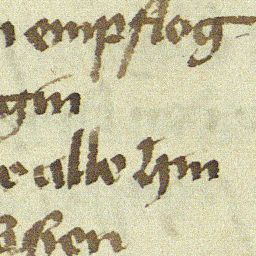 n empflog
gin
e alle hin
hen